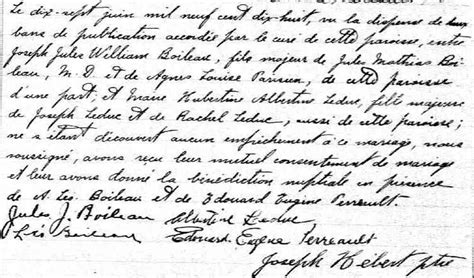 Le dix-sept juin mil neuf cent dix-huit, vu la dispense de deux
bans de publication accordée par le curé de cette paroisse, entre
Joseph Jules William Boileau, fils majeur de Jules Mathias Boi-
leau, M.D. et de Agnes Louise Parisien, de cette paroisse
d'une part; et Marie Hubertine Albertine Leduc, fille majeure
de Joseph Leduc et de Rachel Leduc, aussi de cette paroisse;
ne s'étant découvert aucun empêchement à ce mariage, nous
soussigné, avons reçu leur mutuel consentement de mariage
et leur avons donné la bénédiction nuptiale en présence
de A. Léo. Boileau et de Edouard Eugène Perreault.
Jules J. Boileau Albertine Leduc
Léo Boileau Edouard Eugène Perreault
Joseph Hébert ptre